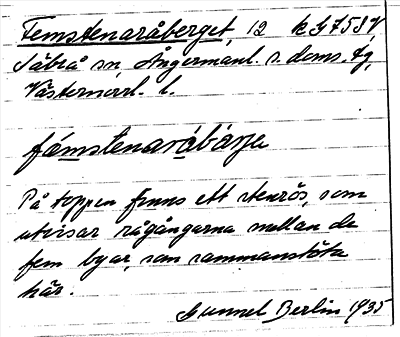 Femstenaråberget, 12
Säbrå sn, Ångermanl. s. doms. tg,
Västernorrl. l.
På toppen finns ett stenrös, som
utvisar rågångarna mellan de
fem byar, som sammanstöta
här.
Gunnel Berlin 1935